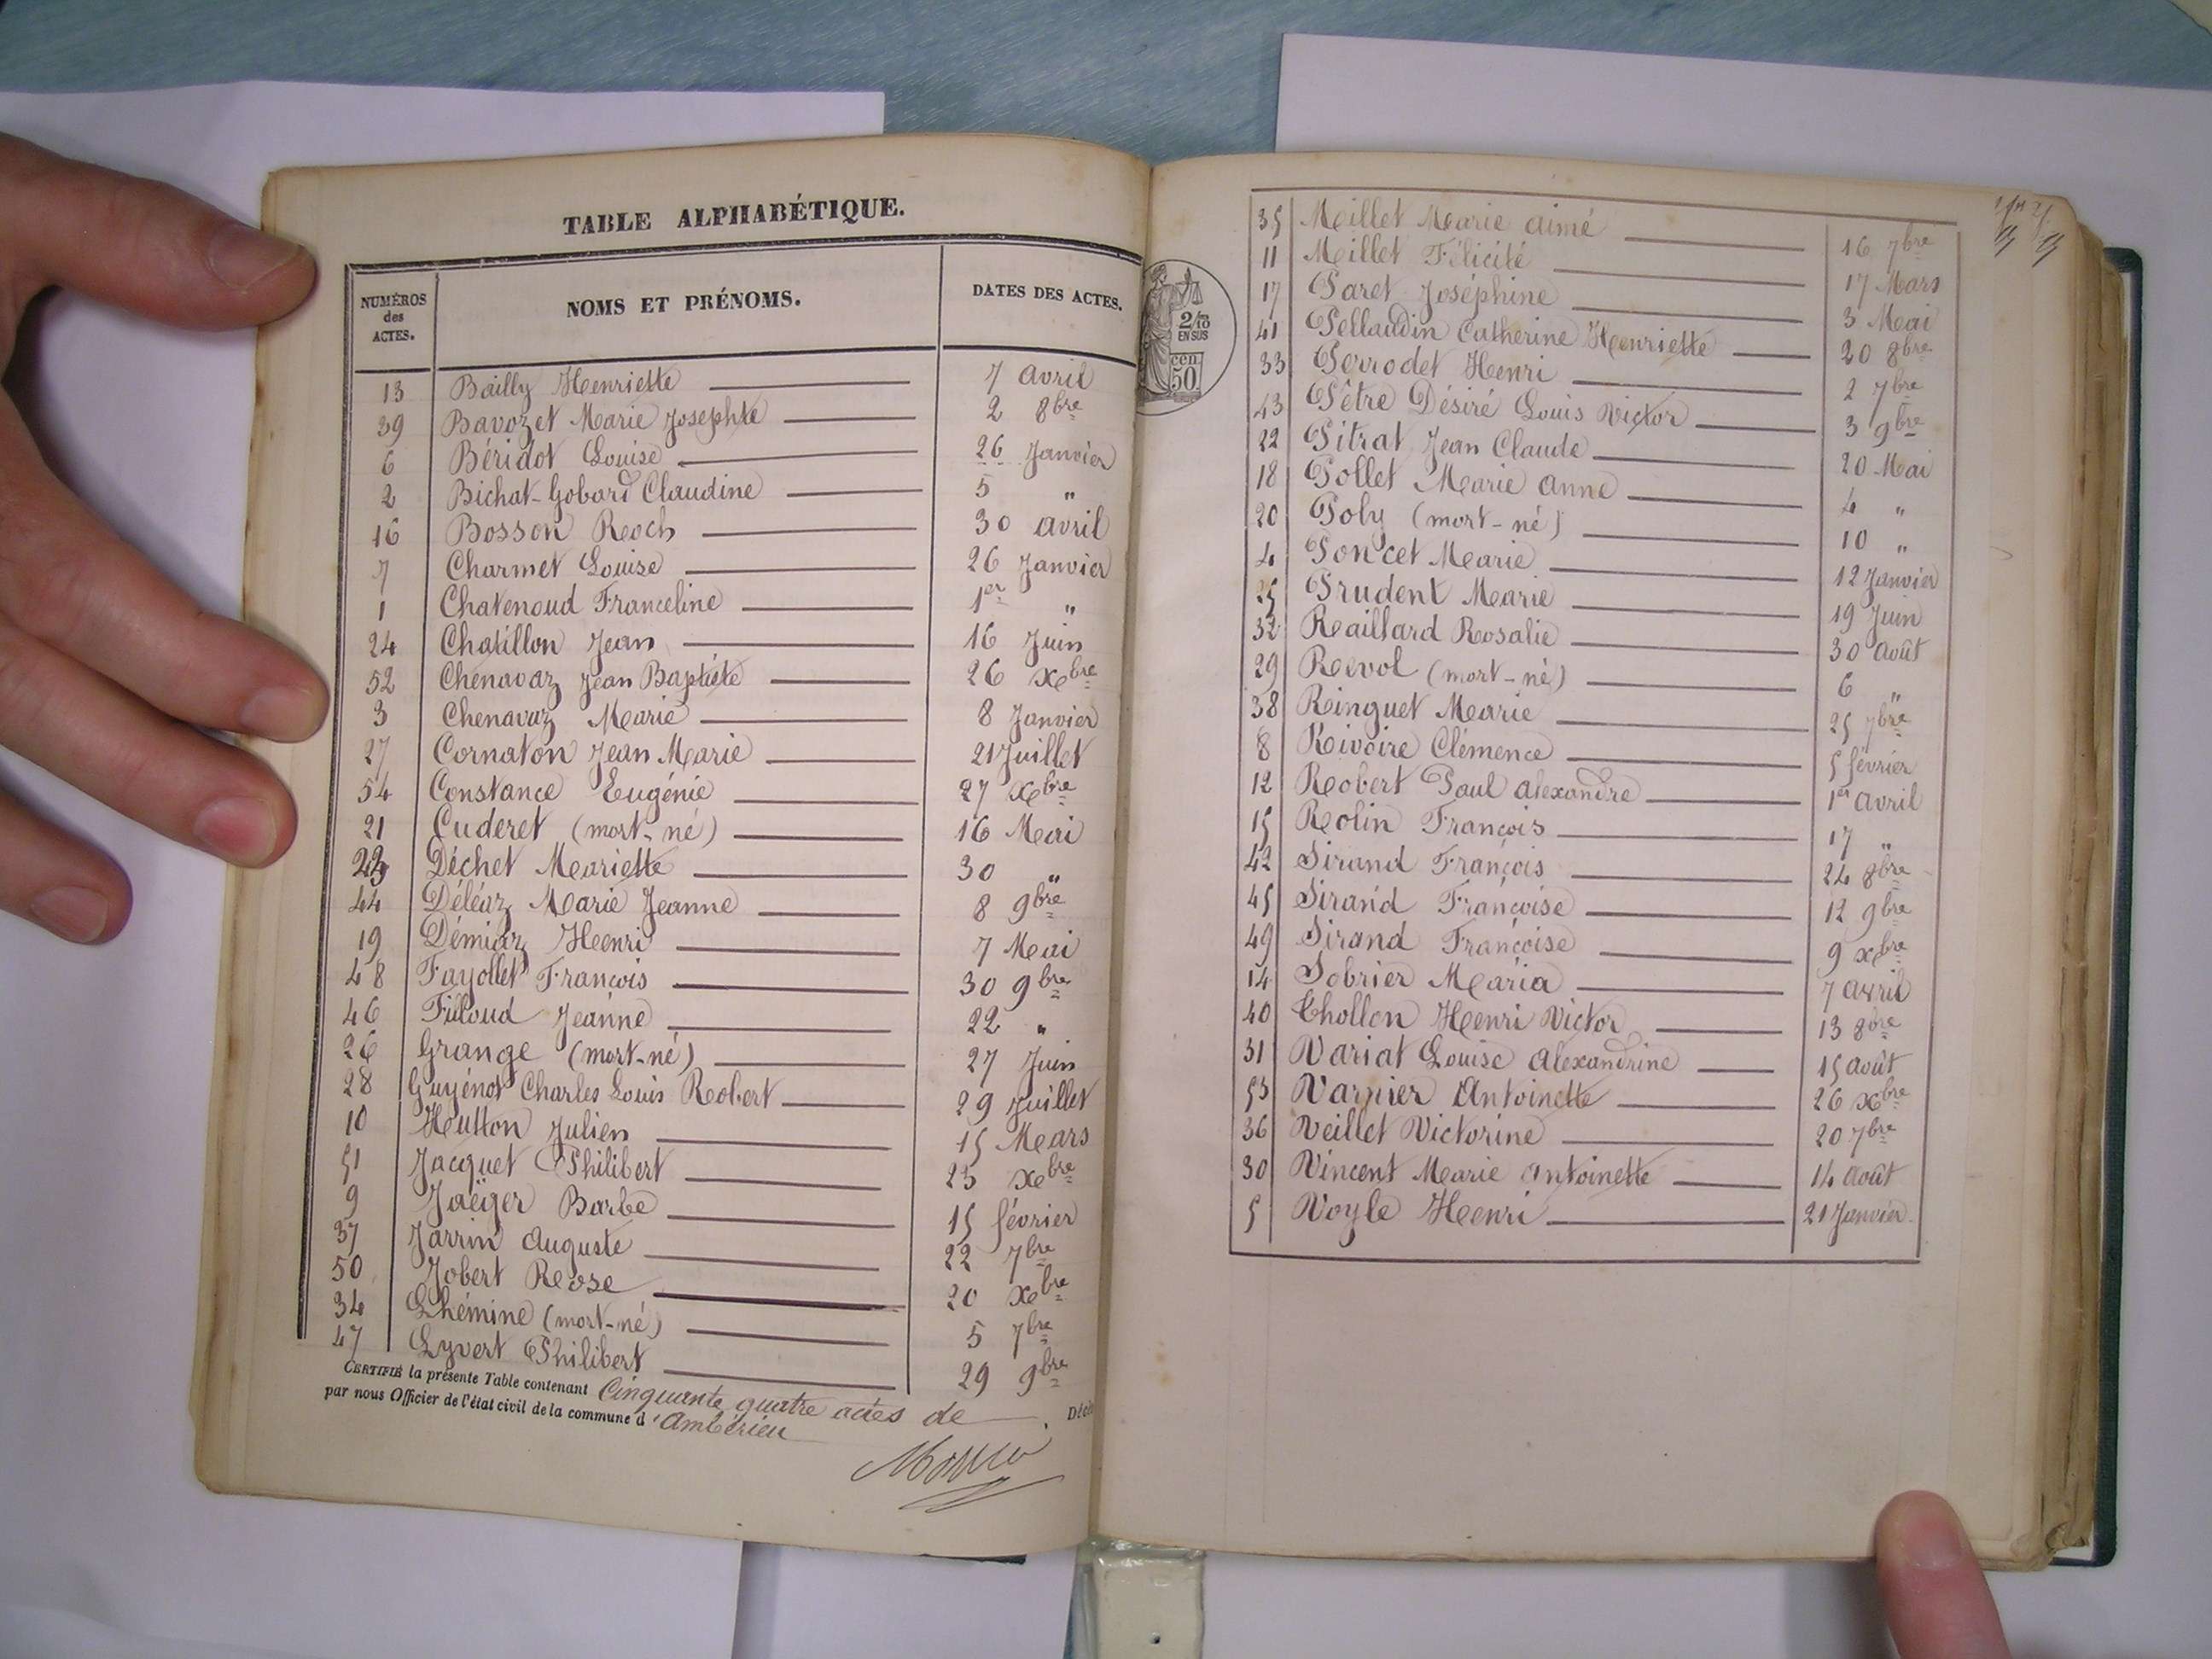 TABLE ALPHABÉTIQUE.
NUMÉROS des ACTES. NOMS ET PRÉNOMS. DATES DES ACTES.
13 Bailly Henriette 7 avril
39 Bavozet Marie Josephte 2 8bre
6 Béridot Louise 26 Janvier
2 Bichat-Gobard Claudine 5 "
16 Bosson Roch 30 avril
7 Charmet Louise 26 Janvier
1 Chatenoud Franceline 1er "
24 Chatillon Jean 16 Juin
52 Chenavaz Jean Baptiste 26 Xbre
3 Chenavaz Marie 8 Janvier
27 Cornaton Jean Marie 21 Juillet
54 Constance Eugénie 27 Xbre
21 Cuderet (mort-né) 16 Mai
23 Déchet Mariette 30 "
44 Déléaz Marie Jeanne 8 9bre
19 Démiaz Henri 7 Mai
48 Fayollet François 30 9bre
46 Filloud Jeanne 22 "
26 Grange (mort-né) 27 Juin
28 Guyénot Charles Louis Robert 29 Juillet
10 Hutton Julien 15 Mars
51 Jacquet Philibert 23 Xbre
9 Jaëger Barbe 15 février
37 Jarrin Auguste 22 7bre
50 Jobert Rose 20 Xbre
34 Lhémine (mort-né) 5 7bre
47 Lyvert Philibert 29 9bre
CERTIFIÉ la présente Table contenant Cinquante quatre actes de Décè
par nous Officier de l'état civil de la commune d'Ambérieu
2/10
EN SUS
cen
50
35 Millet Marie aimé 16 7bre
11 Millet Félicité 17 Mars
17 Paret Joséphine 3 Mai
41 Pellaudin Catherine Henriette 20 8bre
33 Perrodet Henri 2 7bre
43 Pêtre Désiré Louis Victor 3 9bre
22 Pitrat Jean Claude 20 Mai
18 Pollet Marie anne 4 "
20 Poly (mort-né) 10 "
4 Poncet Marie 12 Janvier
25 Prudent Marie 19 Juin
32 Raillard Rosalie 30 août
29 Revol (mort-né) 6 "
38 Ringuet Marie 25 7bre
8 Rivoire Clémence 5 février
12 Robert Paul alexandre 1er avril
15 Rolin François 17 "
42 Sirand François 24 8bre
45 Sirand Françoise 12 9bre
49 Sirand Françoise 9 xbre
14 Sobrier Maria 7 avril
40 Thollon Henri Victor 13 8bre
31 Variat Louise alexandrine 15 août
53 Varnier Antoinette 26 xbre
36 Veillet Victorine 20 7bre
30 Vincent Marie antoinette 14 août
5 Voyle Henri 21 Janvier